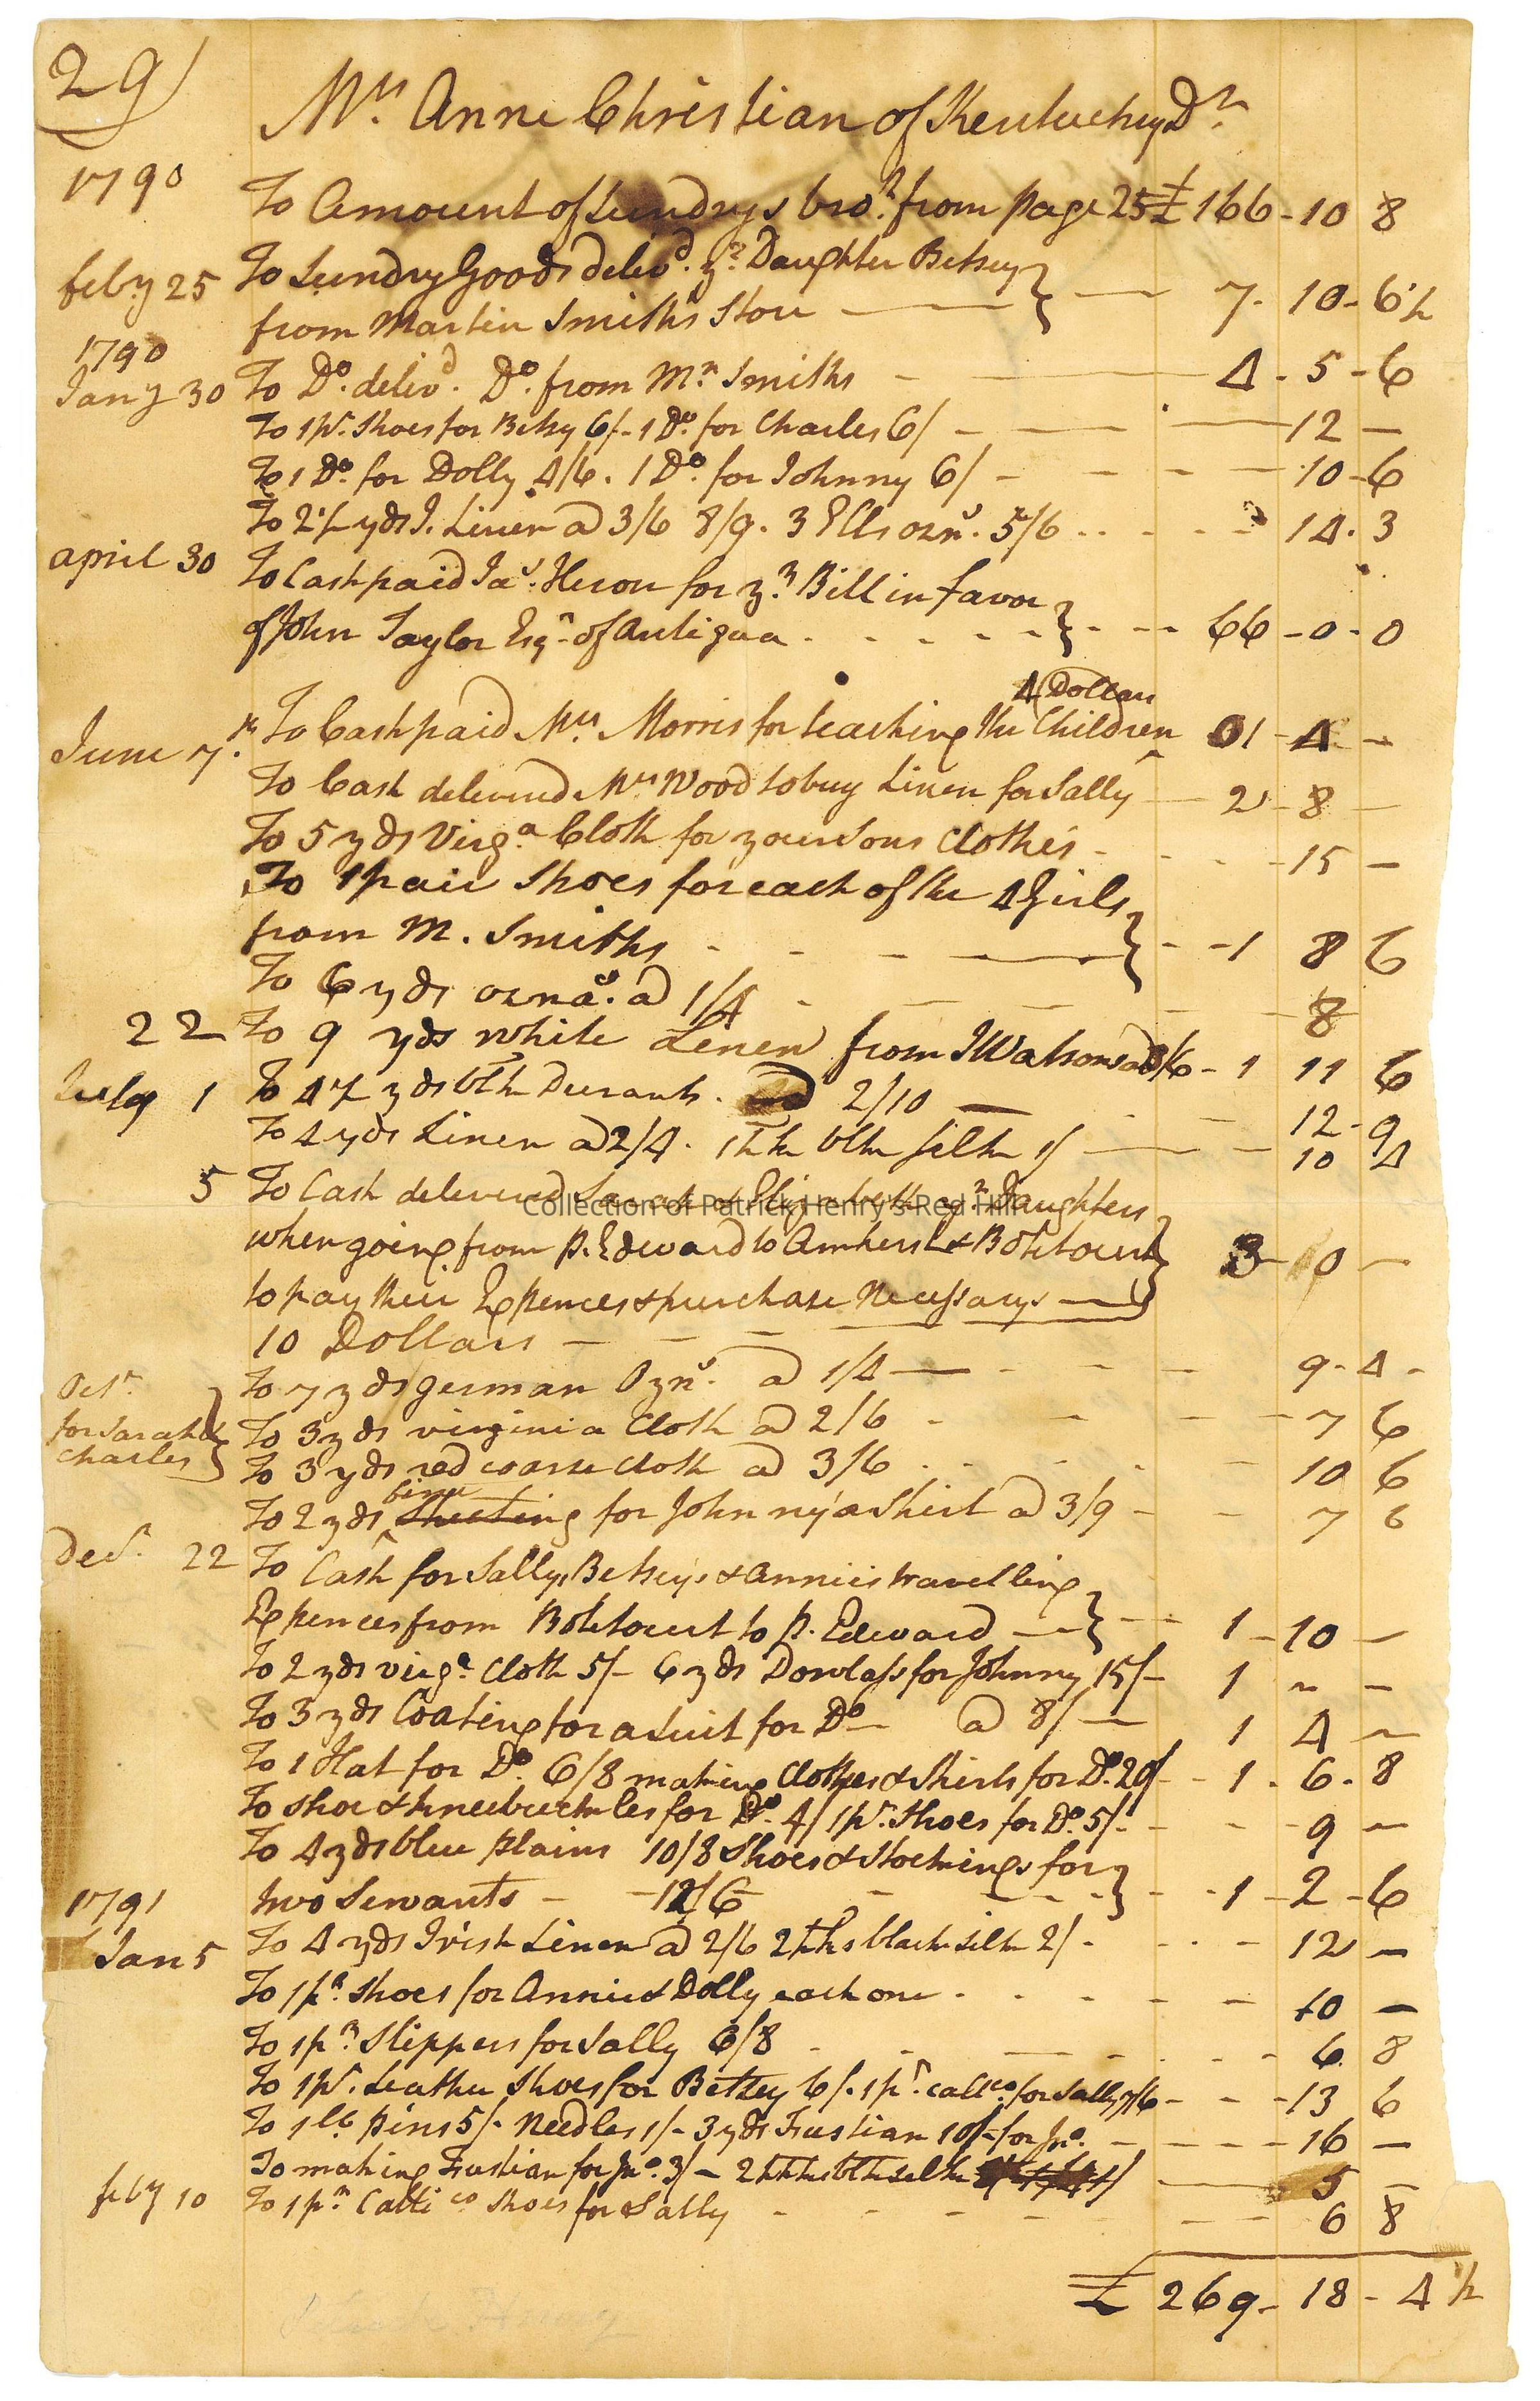 29
Mrs. Anne Christian of Kentuckey Dr.
1790 To Amount of Sundrys bro.t from page 25 £ 166 - 10 8
feby 25 To Sundry Goods deliv.d yr. Daughter Betsey
from Martin Smith's Store — } — 7 - 10 - 6 1/2
1790
Jany 30 To Do. deliv.d Do. from Mr. Smiths — 4 - 5 - 6
To 1 pr. Shoes for Betsy 6/- 1 Do. for Charles 6/ — 12 —
To 1 Do. for Dolly 4/6. 1 Do. for Johnny 6/ - - - - 10 - 6
To 2 1/2 yds I. Linen a 3/6 8/9. 3 Ells ozns. 5/6 . . - - - 14. 3
april 30 To Cash paid Jas. Heron for yr. Bill in favor
of John Taylor Esqr. of Antigua . - - - - } - - - 66 - 0 - 0
4 Dollars
June 7.th To Cash paid Mrs. Morris for teaching the Children 01 - 4 -
To Cash delivered Mrs Wood to buy Linen for Sally — 2 - 8 —
To 5 yds Virg.a Cloth for your Sons Clothes - - - - 15 —
To 1 pair Shoes for each of the 4 Girls
from M. Smiths - - - — } - - 1 8 6
To 6 yds ozna.s a 1/4 - — — — 8
22 To 9 yds white Linen from J Watsons a 3/6 - 1 11 6
July 1 To 4 1/2 yds blk Durants. a 2/10 — - — 12 - 9
To 4 yds Linen a 2/4. 1 hk blk silk 1/ — — — 10 4
5 To Cash delivered Sarah & Elizabeth yr. Daughters
Collection of Patrick Henry's Red Hill
when going from P. Edward to Amherst & Botetourt } 3 - 10 —
to pay their Expences & purchase Necessarys —
10 Dollars — — — — —
Octr. To 7 yds german Ozns. a 1/4 — - — — 9 - 4 -
for Sarah & To 3 yds virginia Cloth a 2/6 - - — — 7 6
Charles } To 3 yds red coarse Cloth a 3/6 . - . - — 10 6
fine
To 2 yds Sheeting for Johnny a Shirt a 3/9 - — 7 6
Decr. 22 To Cash for Sally, Betsey's & Annies travelling
Expences from Botetourt to P. Edward — } - - - 1 - 10 —
To 2 yds virg.a Cloth 5/- 6 yds Dowlass for Johnny 15/- 1 ~ —
To 3 yds Coating for a Suit for Do — a 8/ — 1 4 ~
To 1 Hat for Do. 6/8 making Clothes & Shirts for Do. 20/ - - 1 - 6 - 8
To shoe & kneebuckles for Do. 4/ 1 pr. Shoes for Do. 5/- - - - 9 ~
To 4 yds blue plains 10/8 Shoes & Stockings for
1791 two Servants - - 12/6 - - - - } - - 1 - 2 - 6
Jan 5 To 4 yds Irish Linen a 2/6 2 hks black silk 2/ - - - — 12 —
To 1 pr. Shoes for Annie & Dolly each one . - - - — 10 —
To 1 pr. Slippers for Sally 6/8 - - — - . - - - 6. 8
To 1 pr. Leather Shoes for Betsey 6/. 1 pr. callco. for Sally 7/6 - - - 13 6
To 1 lb pins 5/. Needles 1/- 3 yds Fustian 10/- for Jno. — - - - - 16 —
To making Fustian for Jno. 3/ - 2 hks blk silk — 5 —
feby 10 To 1 pr. Callico Shoes for Sally - - - - - - - 6 8
£ 269 - 18 - 4 1/2